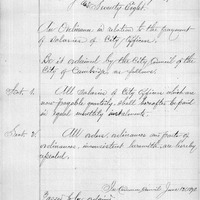 Seventy Eight.
An Ordinance in relation to the payment
of Salaries of City Officers.
Be it ordained by the City Council of the
City of Cambridge as follows:
Sect. 1. All salaries of City Officers which are
now payable quarterly, shall hereafter be paid
in equal monthly instalments.
Sect. 2. All orders, ordinances or parts of
ordinances, inconsistent herewith, are hereby
repealed.
In Common Council June 12, 1878
Passed to be ordained